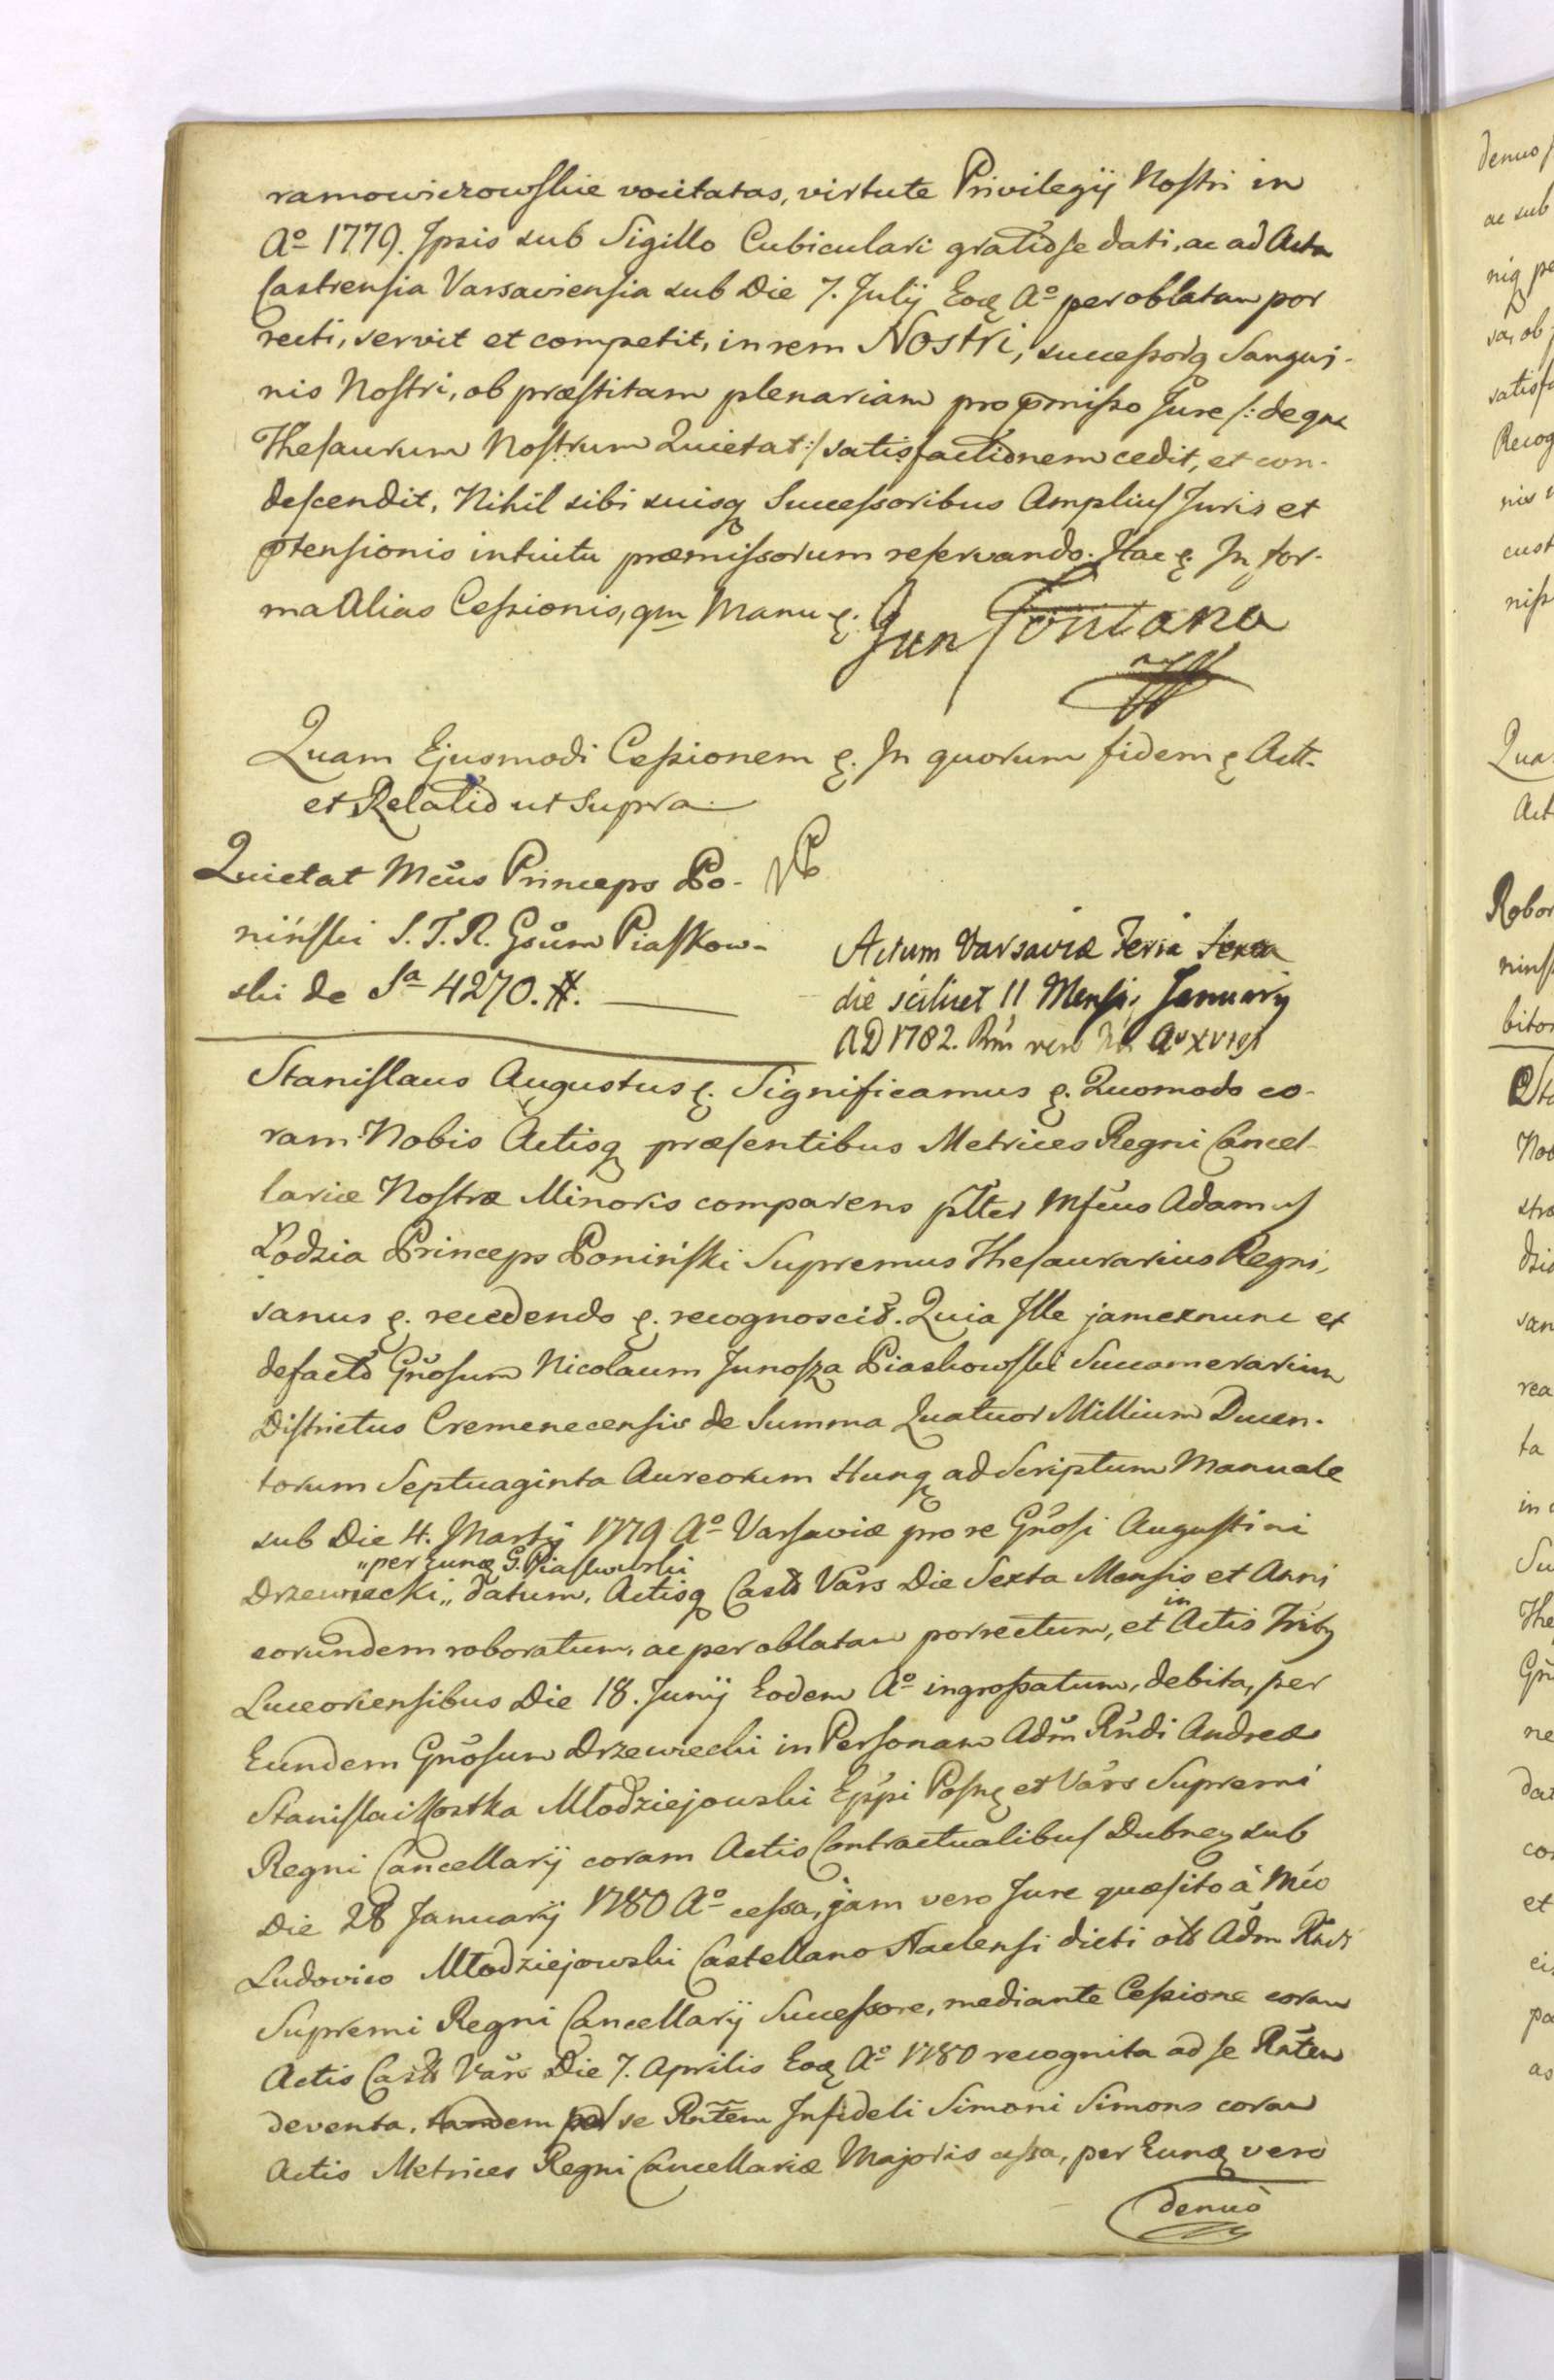 ramowiczowskie vocitatas, virtute Privilegij Nostri in
Aº 1779. Ipsis sub Sigillo Cubiculari gratiose dati, ac ad Acta
Castrensia Varsaviensia sub Die 7. Julij Eoq Aº per oblatam por
recti, servit et competit, in rem Nostri, successorq Sangvi-
nis Nostri, ob præstitam plenariam pro pmisso Jure /: de qua
Thesaurum Nostrum Quietat :/ satisfactionem cedit, et con-
descendit, Nihil sibi suisq Successoribus Amplius Juris et
ptensionis intuitu præmissorum reservando. Hac ę. In for-
ma Alias Cessionis, qm Manu ę. Jan Fontana
Quam Ejusmodi Cessionem ę. In quorum fidem ę Act.
et Relatio ut supra
Quietat Mcus Princeps Po-
niński S. T. R. Gsum Piaskow-
ski de Sa 4270. #.
Actum Varsaviæ Feria Sexta
die scilicet 11 Mensis January
AD 1782. Rni vero Nri Aº XVIII
Stanislaus Augustus ę. Significamus ę. Quomodo co-
ram Nobis Actisq præsentibus Metrices Regni Cancel-
lariæ Nostræ Minoris comparens plter Mfcus Adamus
Lodzia Princeps Poniński Supremus Thesaurarius Regni,
sanus ę. recedendo ę. recognoscit. Quia Ille jam exnunc et
defacto Gnosum Nicolaum Junosza Piaskowski Succamerarium
Districtus Cremenecensis de Summa Quatuor Millium Ducen-
torum Septuaginta Aureorum Hung ad Scriptum Manuale
sub Die 4. Martij 1779 Aº Varsaviæ pro re Gnosi Augustini
"per Eunq G. Piaskowski
Drzewiecki „ datum, Actisq Castr Vars Die Sexta Mensis et Anni
eorundem roboratum, ac per oblatam porrectum, et in Actis Trib
Luceoriensibus Die 18. Junij Eodem Aº ingrossatum, debita, per
Eundem Gnosum Drzewiecki in Personam Adm Rndi Andreæ
Stanislai Kostka Młodziejowski Eppi Posnę et Vars Supremi
Regni Cancellarij coram Actis Contractualibus Dubneņ sub
Die 28 Januarij 1780 Aº cessa, jam vero Jure quæsito à Mco
Ludovico Młodziejowski Castellano Naclensi dicti olt Adm Rndi
Supremi Regni Cancellarij Successore, mediante Cessione coram
Actis Castr Vars Die 7. Aprilis Eoq Aº 1780 recognita ad se Rntem
deventa, tandem per se Rntem Infideli Simoni Simons coram
Actis Metrices Regni Cancellariæ Majoris cessa, per Eunq vero
denuò